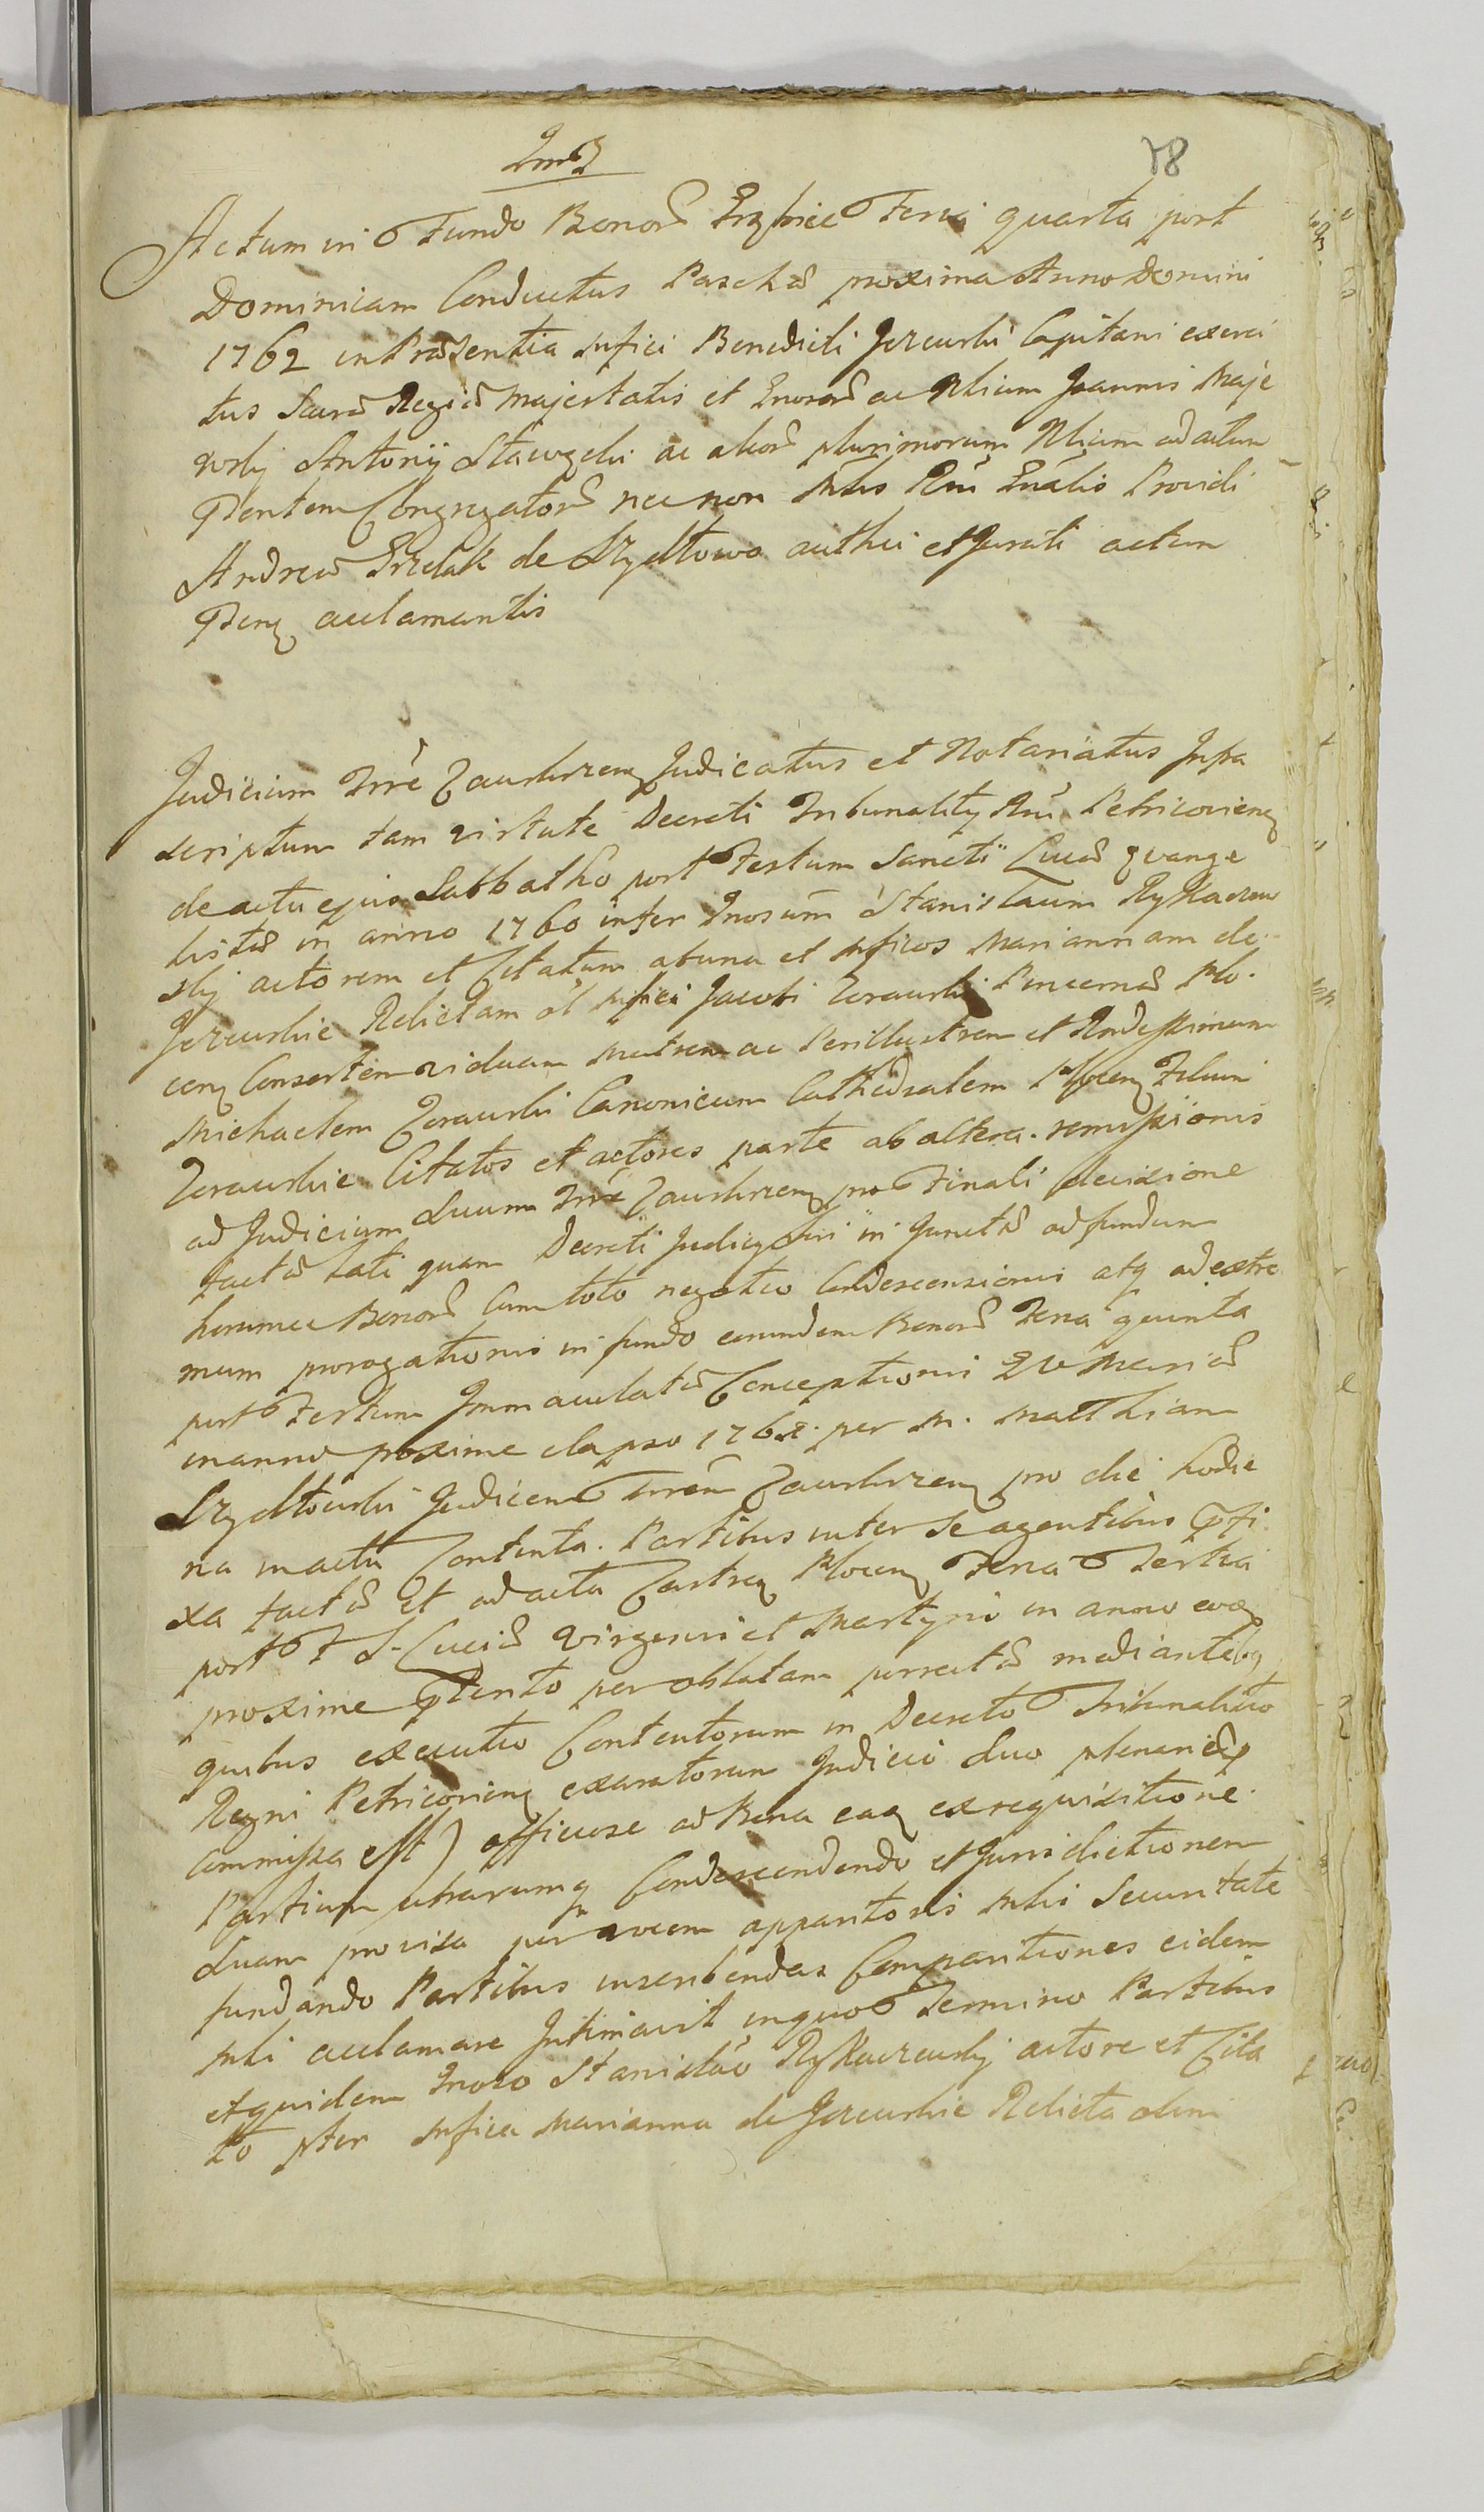 78
Actum in Fundo Bonor Feria quarta post
Dominicam Conductus Paschæ proxima Anno Domini
1762 in Præsentia Mfici Benedicti Jezewski Capitani exerci
tus Sacræ Regiæ Majestatis et Gnosor ac Nlium Joannis Maje
wskj Antonij ac alior plurimorum Nlium ad actum
Pntem Congregator nec non Mlis Rni Gnalis Providi
Andreæ Grzelak de Szydłowo authci et Jurati actum
Pens acclamantis
Judicium Trre Zawkrzens Judicatus et Notariatus Infra
scriptum tam virtute Decreti Tribunalitij Rni Petricoviens
de actu ejus Sabbatho post Festum Sancti Lucæ Evange
listæ in anno 1760 inter Gnosum Stanislaum Rykaczew
skj actorem et Citatum ab una et Mficos Mariannam de
Jezewskie Relictam ol Mfici Jacobi Zorawski Pincernæ Plo
cens Consortem viduam Matrem ac Perillustrem et Rndissimum
Michaelem Zorawski Canonicum Cathedralem Plocens Filium
Zorawskie Citatos et actores parte ab altera remissionis
ad Judicium Suum Trre Zawkrzens pro Finali decisione
factæ Lati quam Decreti Judicij Sui in Junctæ ad fundum
horumce Bonor Cum toto negotio Condescensionis atq ad extre
mum prorogationis in fundo eorundem Bonor Feria quinta
post Festum Immaculatæ Conceptionis BV Mariæ
in anno proxime elapso 176 per M. Matthiam
Szydłowski Judicem Trrem Zawkrzens pro die hodie
na in actu Contenta Partibus inter se agentibus Pfi
xa factæ et ad acta Castren Plocens Feria Tertia
post F S. Luciæ Virginis et Martyris in anno eoq
proxime Pterito per oblatam porrectæ mediantebq
quibus executio Contentorum in Decreto Tribunalitio
Regni Petricoviens exaratorum Judicio Suo plenarie
commissa est) officiose ad Bona eaq ex requisitione
Partium utrarumq Condescendendo et Jurisdictionem
Suam provisa per vocem apparitoris Mlri Securitate
fundando Partibus inscribendas Comparitiones eidem
Mlri acclamare Intimavit in quo Termino Partibus
et quidem Gnoso Stanislao Rykaczewskj actore et Cita
to pter Mfica Marianna de Jezewskie Relicta olim